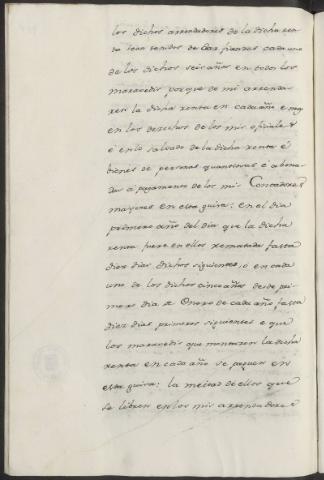 los dichos arrendadores de la dicha ren
da sean tenidos de dar fianzas cada uno
de los dichos seis años en todos los
maravedis, porque de mi arrenda
ren la dicha renta en cada año e
en los derechos de los mis oficiales
é en lo salvado de la dicha renta é
bienes de personas quantiosas é abona
das á pagamento de los mis Contadores
mayores en esta guisa: en el dia
primero año del dia que la dicha
renta fuere en ellos rematada fasta
diez dias dichos siguientes, é en cada
uno de los dichos cinco años desde pri
mero dia de Enero de cada año, fasta
diez dias primeros siguientes e que
los maravedis que montaren la dicha
renta en cada año se paguen en
esta guisa: la meitad de ellos que
se libren en los mis arrendadores